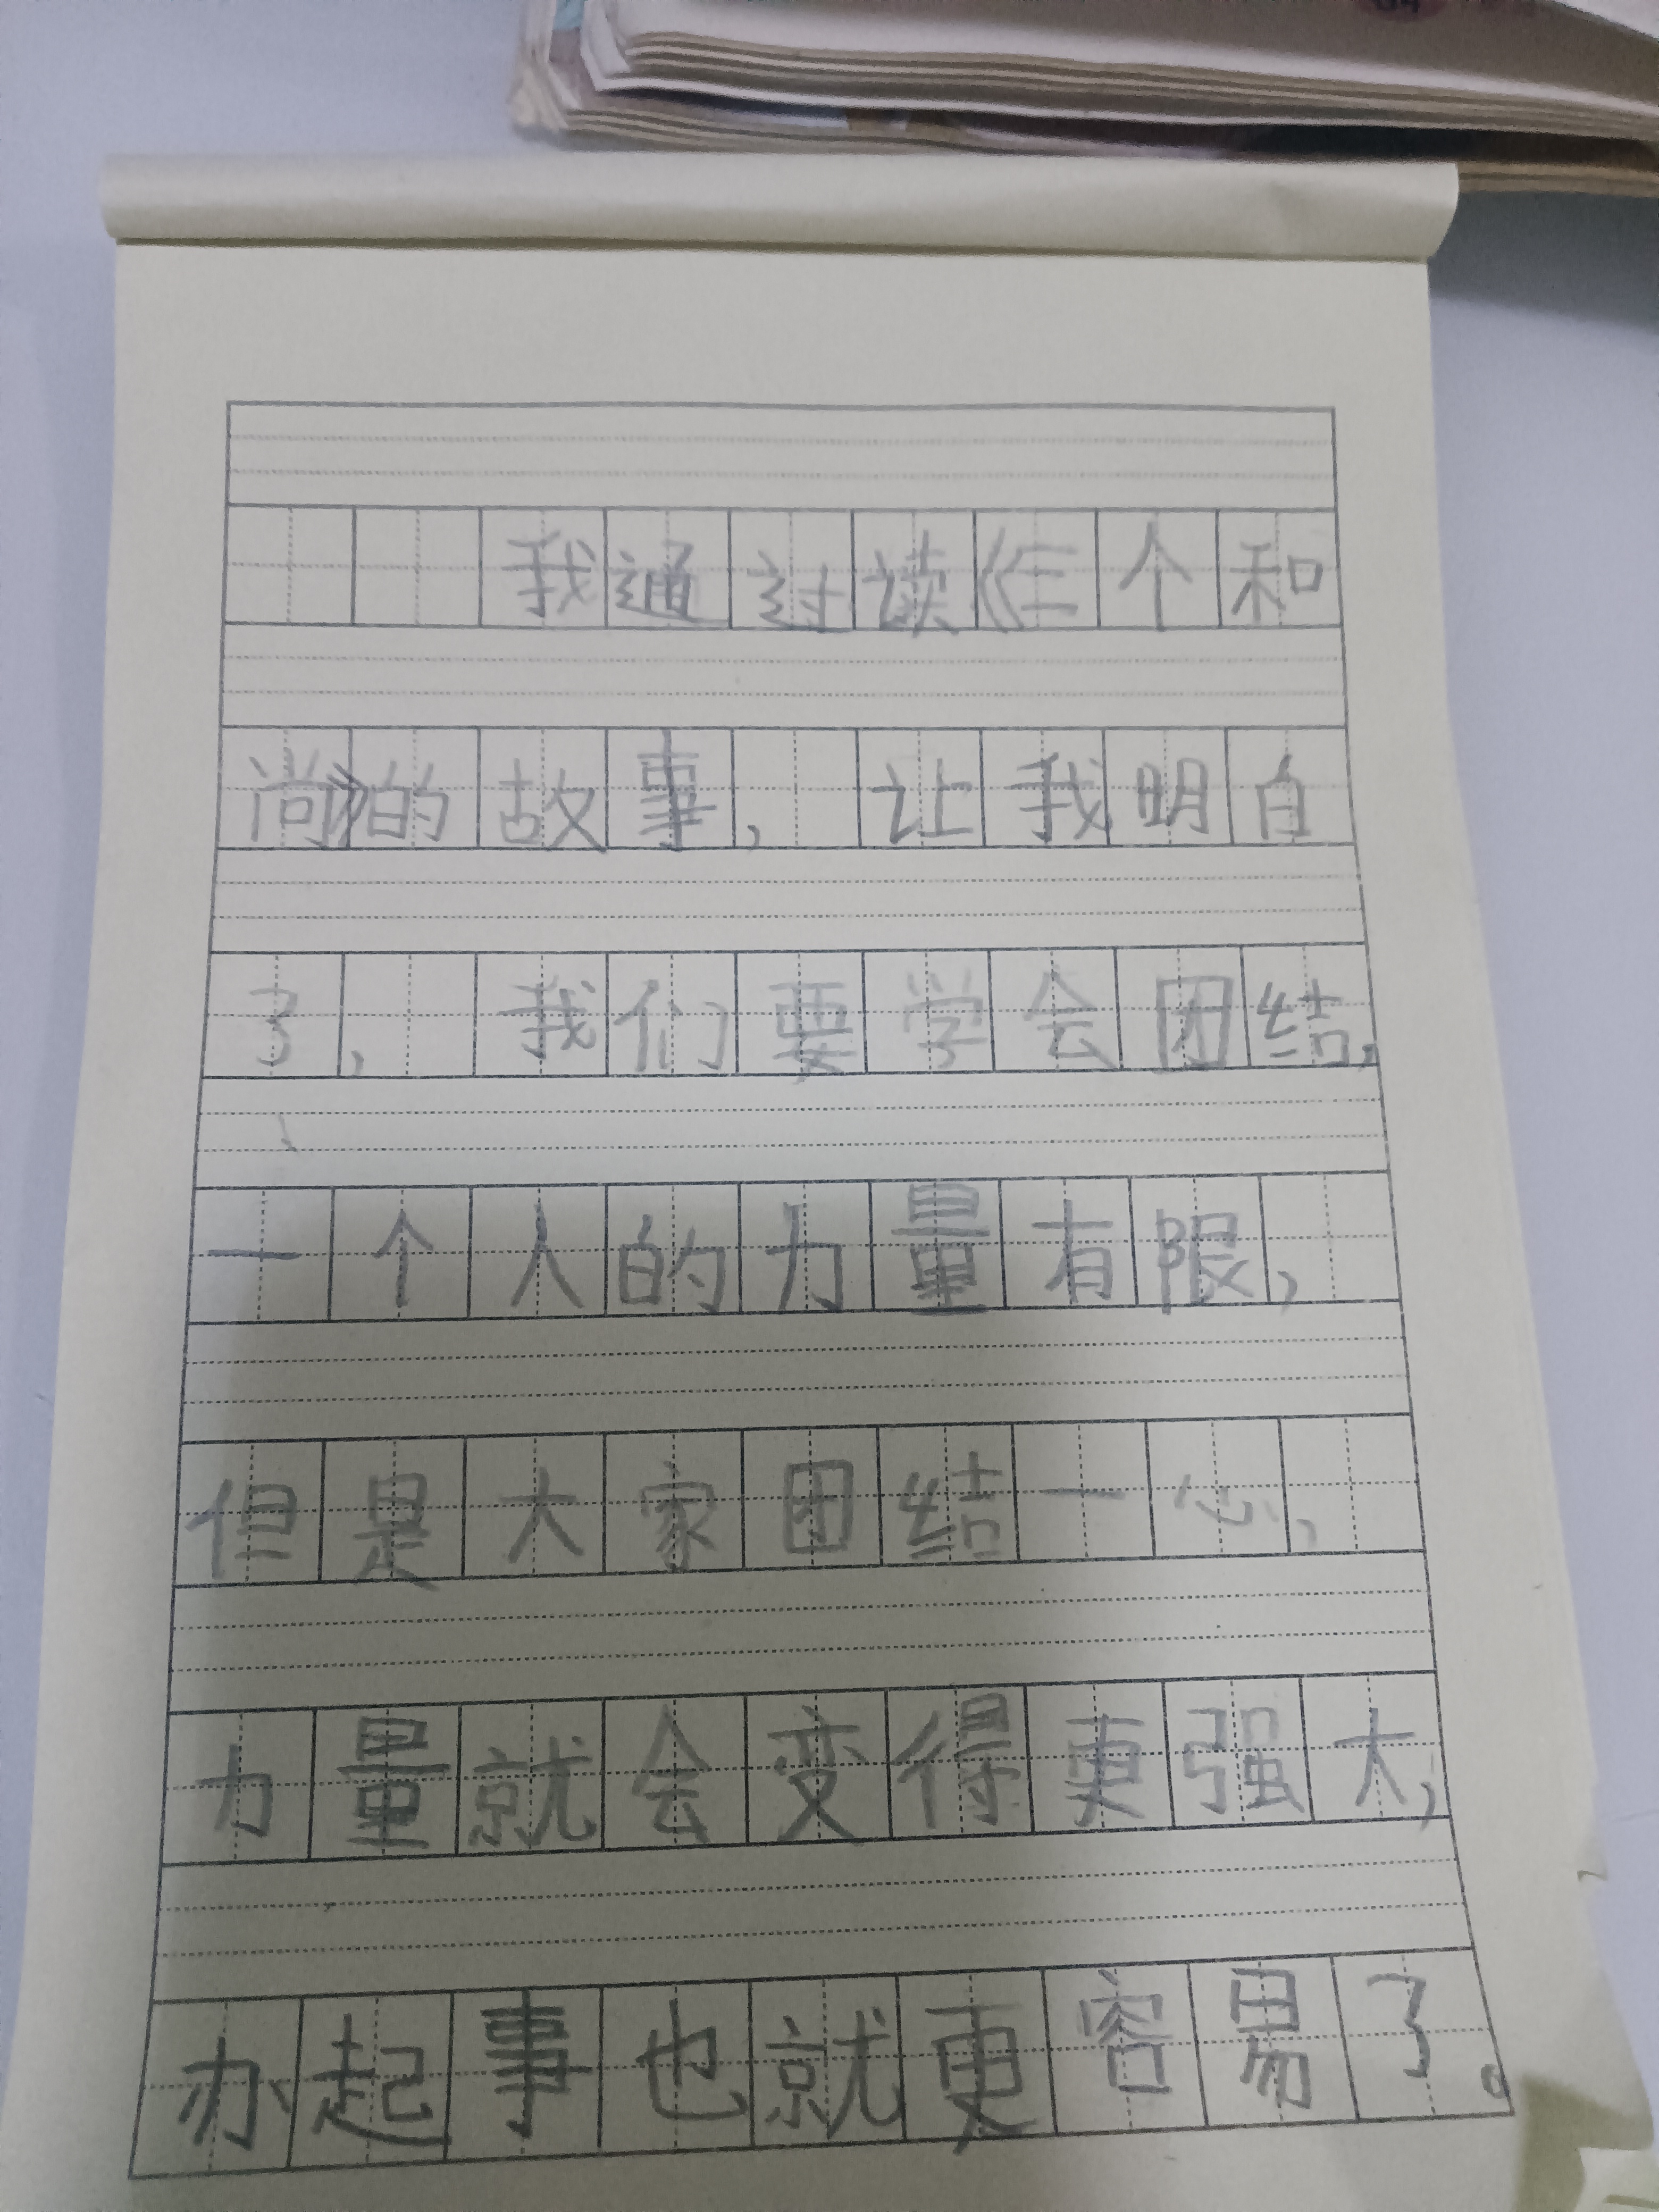 我通过读《三个和
尚》的故事，让我明白
了，我们要学会团结，
一个人的力量有限，
但是大家团结一心，
力量就会变得更强大，
办起事也就更容易了。